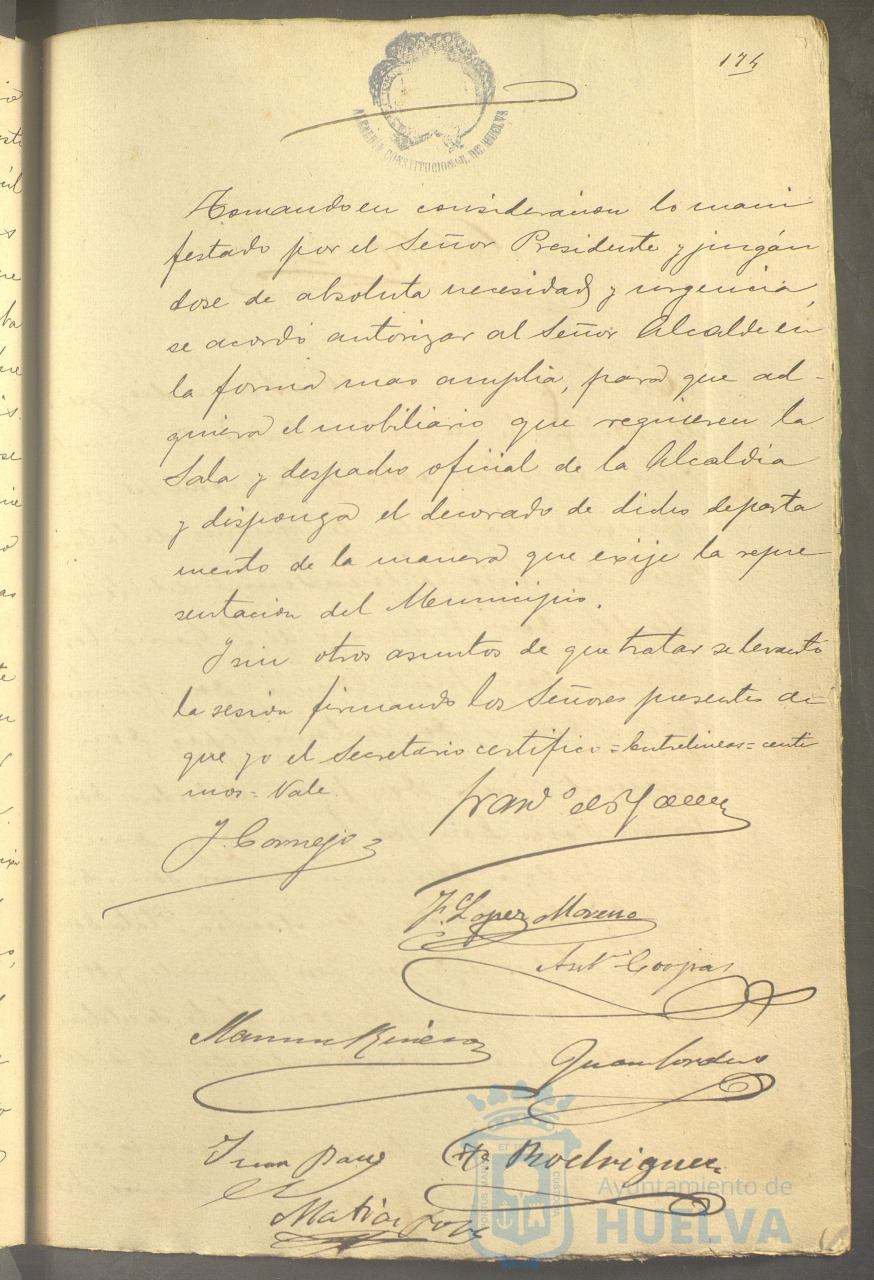 174
ALCALDIA CONSTITUCIONAL DE HUELVA
Tomando en consideracion lo mani
festado por el Señor Presidente y juzgán
dose de absoluta necesidad y urgencia,
se acordó autorizar al Señor Alcalde en
la forma mas amplia, para que ad-
quiera el mobiliario que requieren la
Sala y despacho oficial de la Alcaldia
y disponga el decorado de dicho departa
mento de la manera que exije la repre
sentacion del Municipio.
Y sin otros asuntos de que tratar se levantó
la sesion firmando los Señores presentes de
que yo el Secretario certifico = Entrelineas = centi
mos = Vale
J. Cornejo
F. Lopez Moreno
Juan Cordero
Rodriguez
Matias
Ayuntamiento de
HUELVA